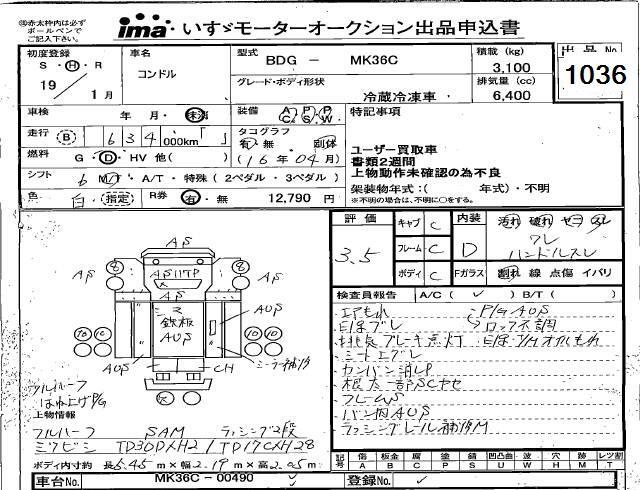 ima いすゞモーターオークション出品申込書
㊟赤太枠内はボールペンでご記入下さい。
初度登録 S・H・R 19 / 1月
車名 コンドル
型式 BDG - MK36C
積載 (kg) 3,100
出品No 1036
グレード・ボディ形状 冷蔵冷凍車
排気量 (cc) 6,400
車検 年 月・抹消
装備 AC PS PW
特記事項
走行 (B) 634,000km
タコグラフ 有・無 別体
(16年04月)
燃料 G・D・HV 他( )
シフト 6 M/T・A/T・特殊(2ペダル・3ペダル)
色 白・指定 R券 有・無 12,790 円
ユーザー買取車
書類2週間
上物動作未確認の為不良
架装物年式:( 年式)・不明
※不明の場合は、不明に○をする。
評価 3.5
キャブ C 内装 D 汚れ 破れ ヤニ スレ
フレーム C ワレ
ハンドルスレ
ボディ C Fガラス 割れ 線 点傷 イバリ
検査員報告 A/C( ✓ ) B/T( )
エアもれ P/G AUS
ロック不調
排気ブレーキ点灯
シートエグレ
根太一部SCヤセ
フレームS
バン内AUS
ラッシングレール補修M
AS
AS
AS117P
AS
AS
鉄板
AUS
AUS
AUS
シーラー補修
CH
フルハーフ
はね上げP/G
上物情報
フルハーフ SAM ラッシング2段
ミツビシ TD30DXH2 / TD17CXH28
ボディ内寸約 長5.45m×幅2.19m×高2.05m
記号 傷A 板金B 腐C 塗P 錆S 凹凸曲U 波W 穴H 跡M レツ割T
車台No. MK36C-00490
登録No.